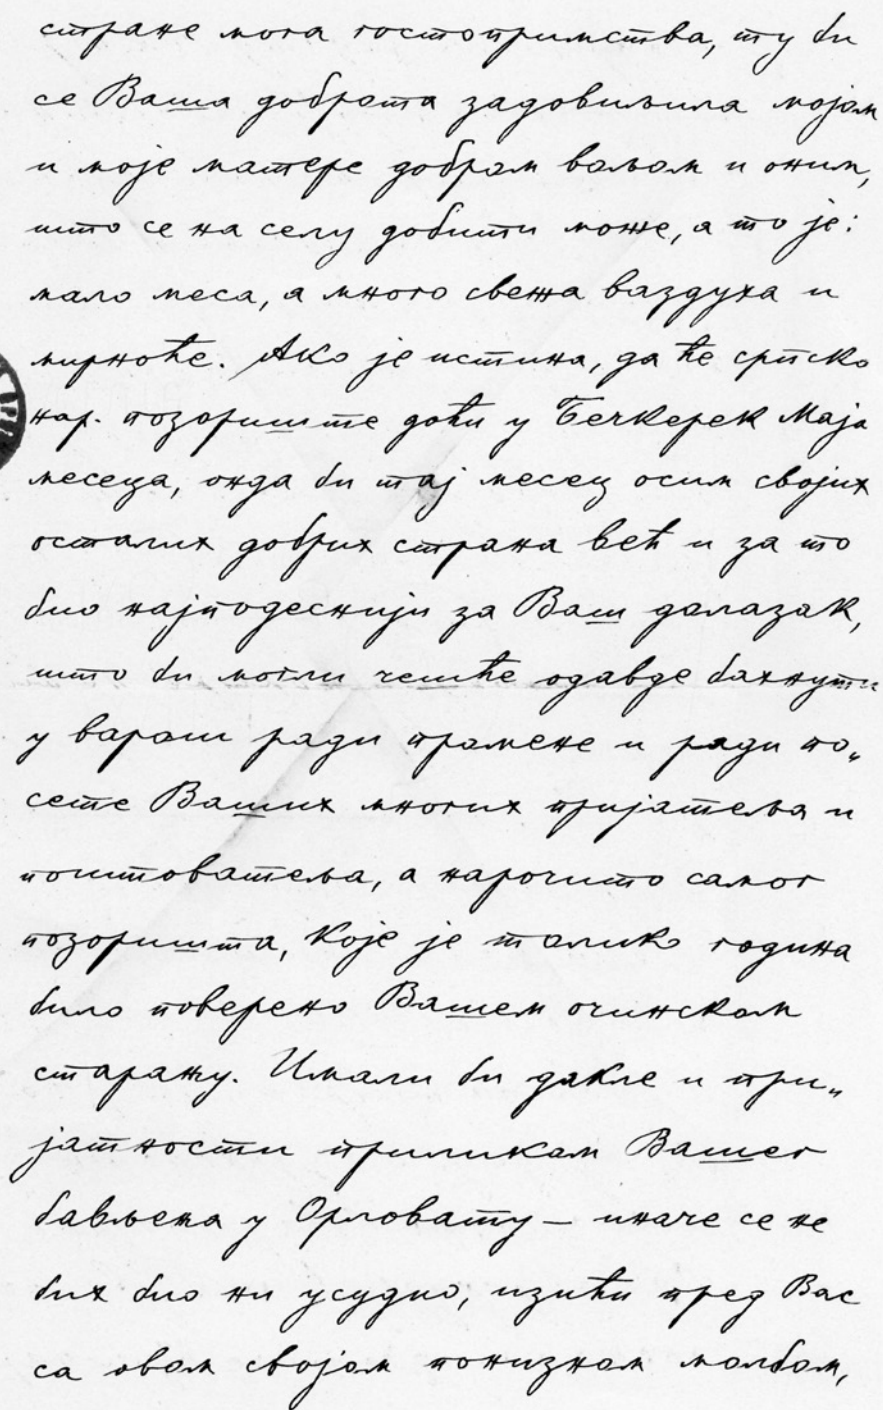 стране мога гостопримства, ту би
се Ваша доброта задовољила мојом
и моје матере добром вољом и оним,
што се на селу добити може, а то је:
мало меса, а много свежа ваздуха и
мирноће. Ако је истина, да ће српско
нар. позориште доћи у Бечкерек Маја
месеца, онда би тај месец осим својих
осталих добрих страна већ и за то
био најподеснији за Ваш долазак,
што би могли чешће одавде бахнути
у варош ради промене и ради по„
сете Ваших многих пријатеља и
поштоватеља, а нарочито самог
позоришта, које је толико година
било поверено Вашем очинском
старању. Имали би дакле и при„
јатности приликом Вашег
бављења у Орловату — иначе се не
бих био ни усудио, изићи пред Вас
са овом својом понизном молбом,